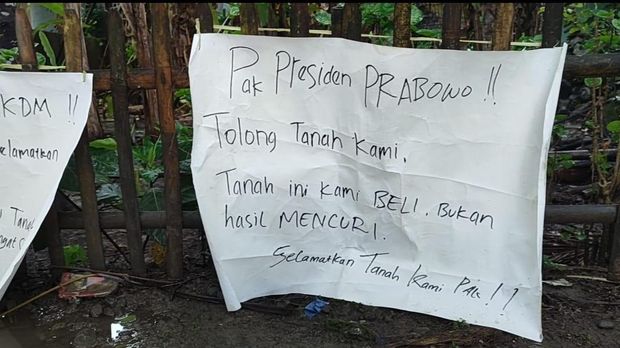 KDM !!
elamatkan
Pak Presiden PRABOWO !!
Tolong Tanah Kami.
Tanah ini kami BELI. Bukan
hasil MENCURI.
Selamatkan Tanah Kami Pak !!